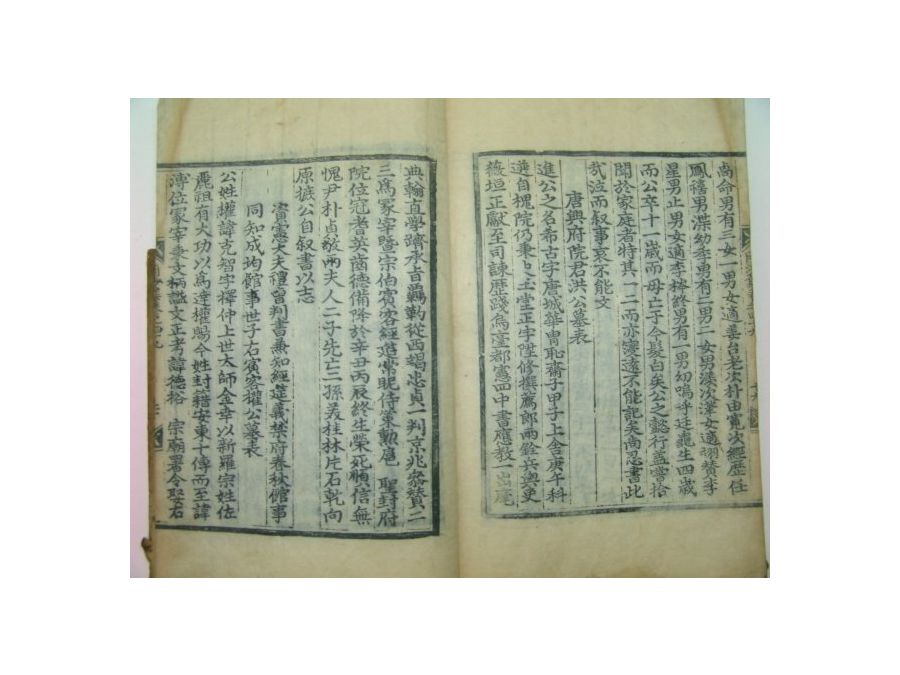 尙命男有三女一男女適姜台老次朴由寬次經歷任
鳳禧男渫幼季男有二男二女男漊次澤女適翊贊李
星男止男女適李榕終男有一男幼嗚呼廷龍生四歲
而公卒十一歲而母亡于今髮白矣公之懿行蓋嘗拾
聞於家庭者特其一二而亦寢遠不能記矣尙忍書此
哉泣而叙事哀不能文
唐興府院君洪公墓表
進公之名希古字唐城華胄恥齋子甲子上舍庚午科
選自槐院仍秉匕玉堂正字陞修撰薦郎兩銓兵與吏
薇垣正獻至司諫歷踐烏臺都憲而中書應敎一出
典翰直學躋承旨羈靮從西竭忠貞一判京兆參贊二
三爲冢宰曁宗伯賓客經筵常昵侍策勳扈聖封府
院位冠耆英齒德備降於辛丑丙辰終生榮死順信無
愧尹朴貞敬兩夫人二子先亡三孫美桂林片石乾向
原摭公自叙書以志
資憲大夫禮曹判書兼知經筵義禁府春秋館事
同知成均館事世子右賓客權公墓表
公姓權諱克智字擇仲上世太師金幸以新羅宗姓佐
麗祖有大功以爲達權賜今姓封籍安東十傳而至諱
溥位冢宰秉文柄謚文正考諱德裕 宗廟署令娶右